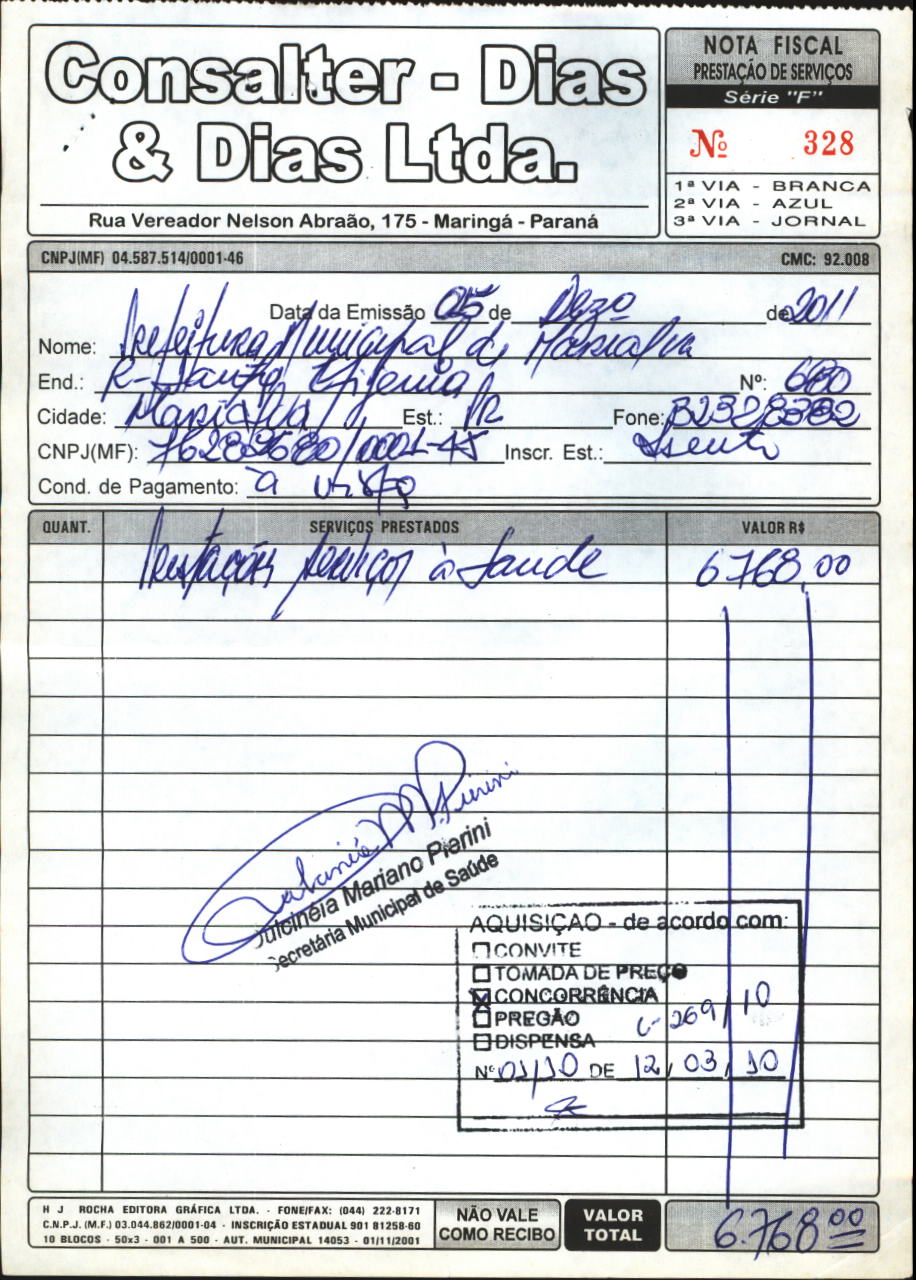 Consalter - Dias
& Dias Ltda.
Rua Vereador Nelson Abraão, 175 - Maringá - Paraná
NOTA FISCAL
PRESTAÇÃO DE SERVIÇOS
Série "F"
Nº 328
1ª VIA - BRANCA
2ª VIA - AZUL
3ª VIA - JORNAL
CNPJ(MF) 04.587.514/0001-46 CMC: 92.008
Data da Emissão 05 de Dezo de 2011
Nome: Prefeitura Municipal de Marialva
End.: R- Santa Efigenia Nº: 680
Cidade: Marialva Est.: PR Fone: 32328382
CNPJ(MF): 76282680/0001-45 Inscr. Est.: Isento
Cond. de Pagamento: à vista
QUANT. SERVIÇOS PRESTADOS VALOR R$
Prestações serviços à Saude 6768,00
Dulcinéia Mariano Pierini
Secretária Municipal de Saúde
AQUISIÇÃO - de acordo com:
CONVITE
TOMADA DE PREÇO
X CONCORRÊNCIA
PREGÃO C- 269/10
DISPENSA
Nº 01/10 DE 12/03/10
H J ROCHA EDITORA GRÁFICA LTDA. - FONE/FAX: (044) 222-8171
C.N.P.J. (M.F.) 03.044.862/0001-04 - INSCRIÇÃO ESTADUAL 901 81258-60
10 BLOCOS - 50x3 - 001 A 500 - AUT. MUNICIPAL 14053 - 01/11/2001
NÃO VALE
COMO RECIBO
VALOR
TOTAL
6.768,00